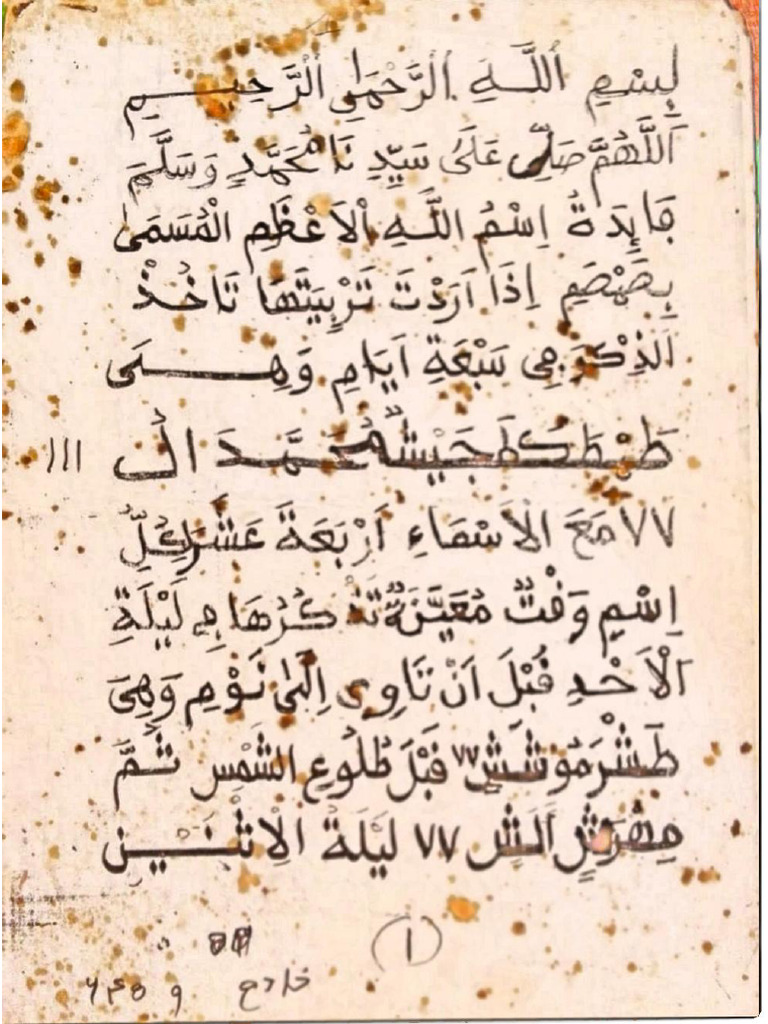 بِسْمِ اللَّهِ الرَّحْمٰنِ الرَّحِيمِ
اَللَّهُمَّ صَلِّ عَلَىٰ سَيِّدِ نَا مُحَمَّدٍ وَسَلَّمَ
ڢَاىِٕدَةُ اِسْمُ اللَّهِ اْلاَعْظَمِ الْمُسَمَىٰ
بِصَهْصَهٍ اِذَا اَرَدْتَ تَرْبِيَتَهَا تَاخُذْ
اَلذِّكْرَ ڢِى سَبْعَةِ اَيَامِ وَهِىَ
مُحَمَّدَ ااا
٧٧ مَعَ الْاَسْمَاءِ اَرْبَعَةَ عَشَرَ كُلِّ
اِسْمٍ وَڧْتٌ مُعَيَّنَةٌ تَذْ كُرُهَا ڢِى لَيْلَةِ
اْلاَحَدِ ڧَبْلَ اَنْ تَاوِى اِلَىٰ نَوْمِ وَهِىَ
٧٧ ڧَبْلَ طُلُوعِ الشَّمْسِ ثُمَّ
٧٧ لَيْلَةَ الِاثْنَيْنِ
١
خادع و